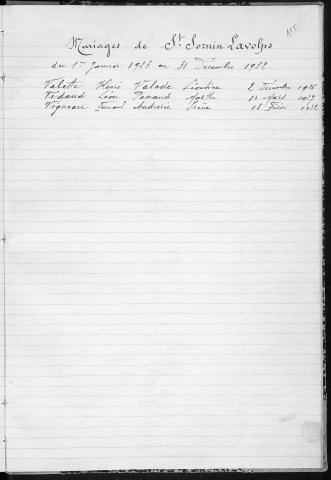 155
Mariages de St Sornin Lavolps
du 1er Janvier 1923 au 31 Décembre 1932
Valette Henri Valade Léontine 2 Décembre 1926
Vidaud Léon Penaud Marthe 1er Mars 1927
Vigneau Fernand Audrerie Irène 18 Février 1932